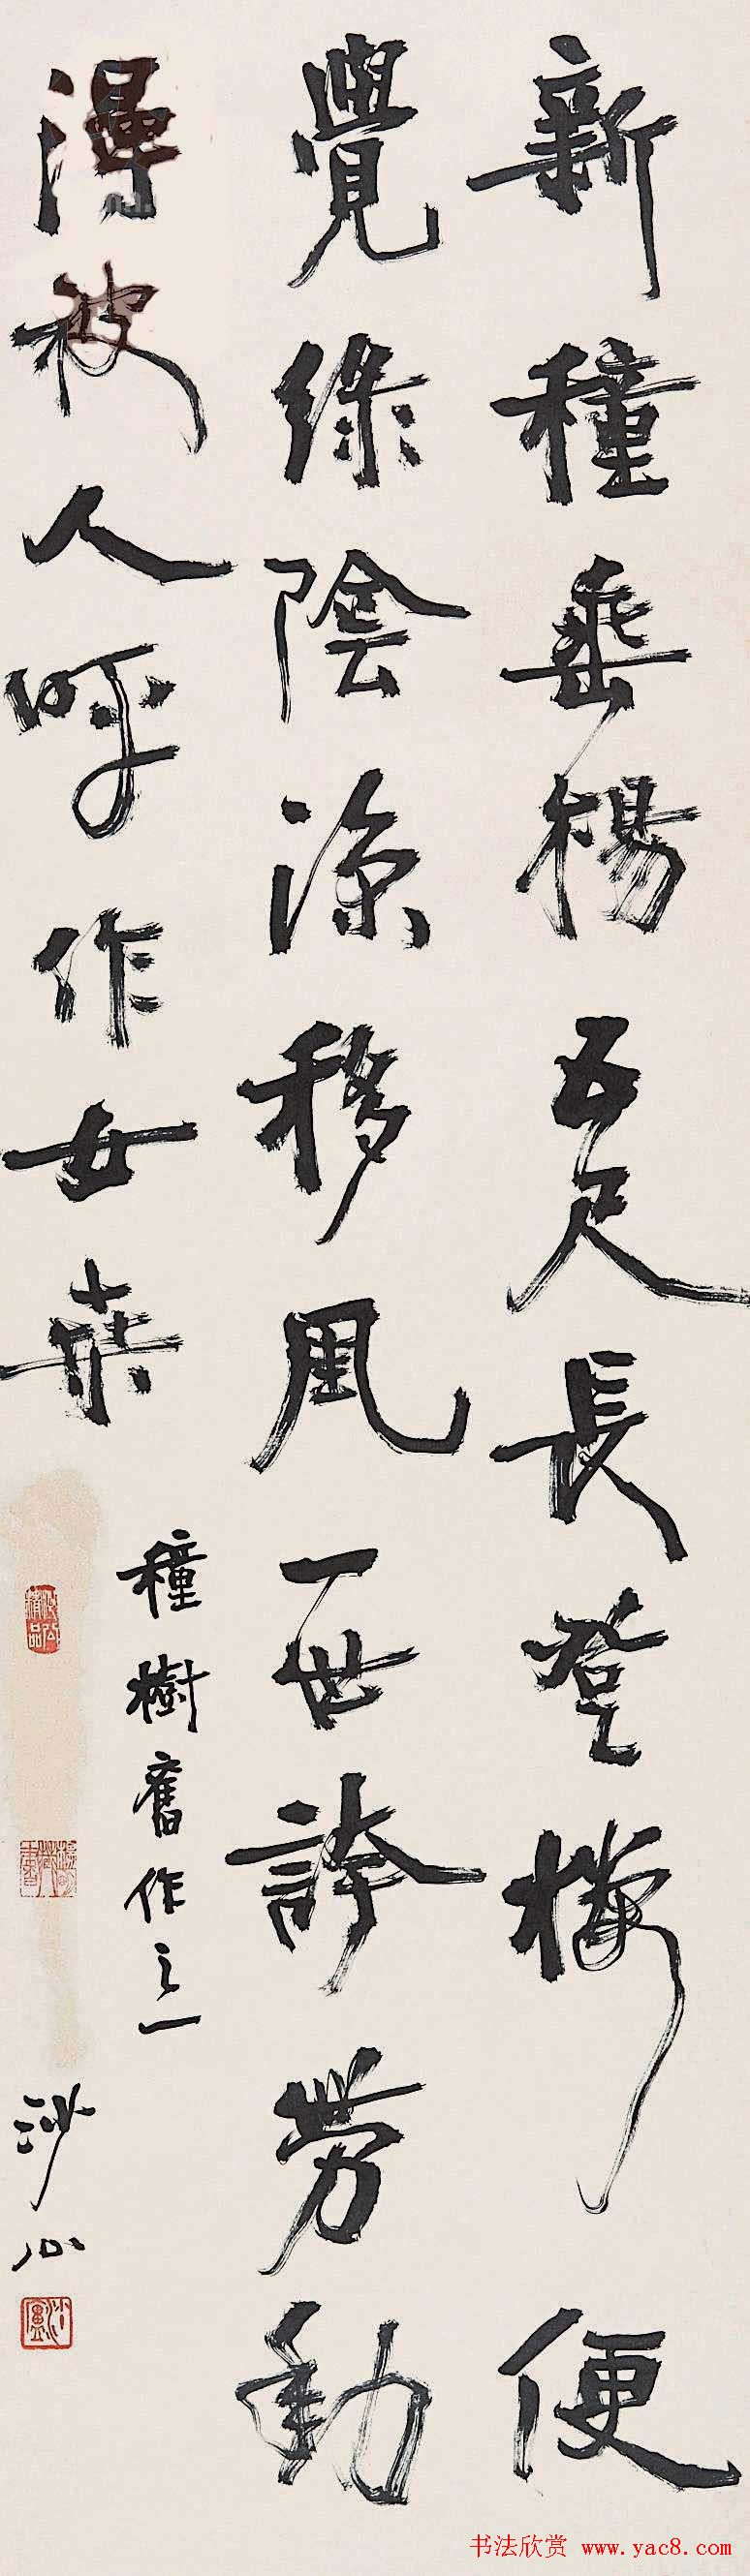 新種垂楊五尺長登樓便
覺綠陰涼移風一世誇勞動
渾被人呼作女桑
種樹舊作之一
沙公
书法欣赏 www.yac8.com